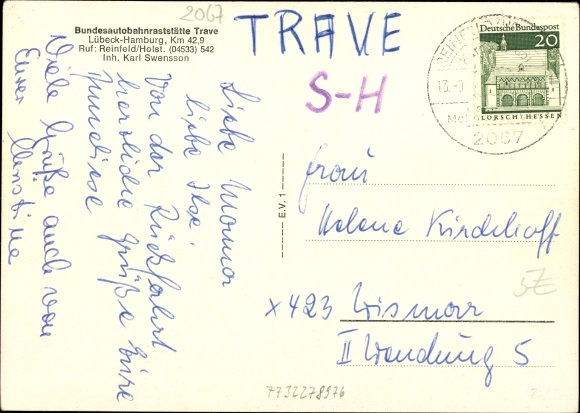 2067
Bundesautobahnraststätte Trave
Lübeck-Hamburg, Km 42,9
Ruf: Reinfeld/Holst. (04533) 542
Inh. Karl Swensson
TRAVE
S-H
Deutsche Bundespost
20
LORSCH/HESSEN
13.-9
2067
Liebe Mama
liebe Ilse!
Von der Rückfahrt
herzliche Grüße Eure
Viele Grüße auch von
Eurer
E.V. 1
Frau
Helene Kirchhoff
x423 Wismar
II Wendung 5
5€
7732278976